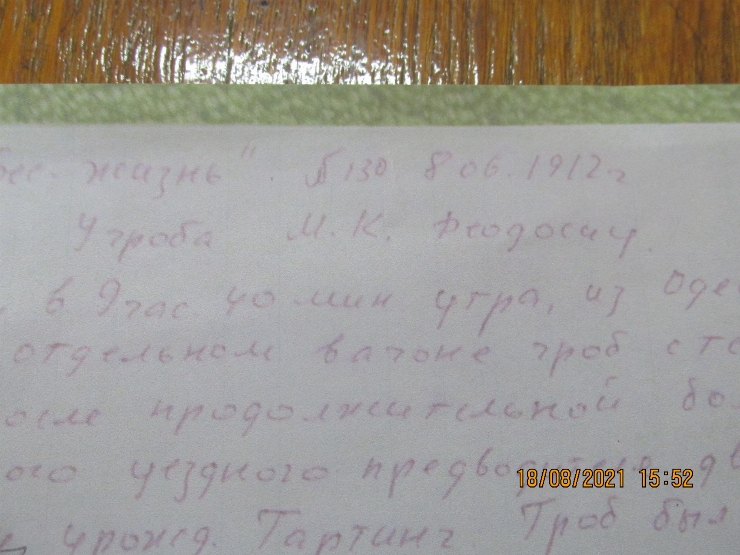 жизнь". №130 8 06.1912 г
У гроба М. К. Феодосиу.
в 9 час 40 мин утра, из Оде
отдельном вагоне гроб с т
осле продолжительной бо
ого уездного предводител дв
урожд. Тартинг. Гроб был
18/08/2021 15:52